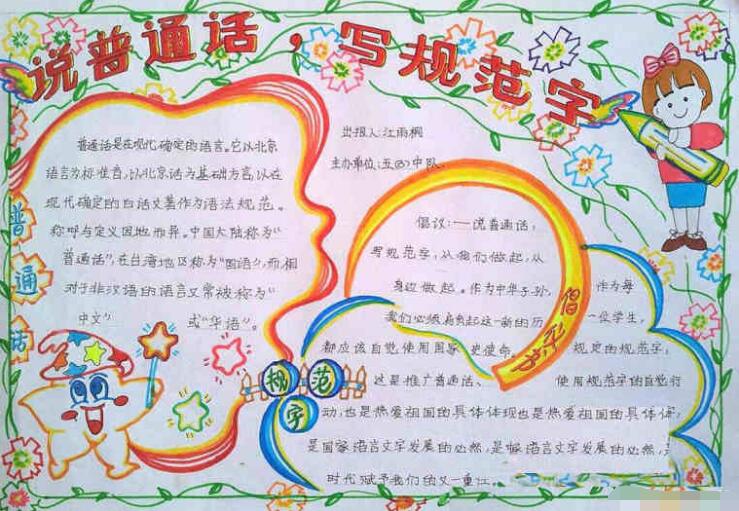 说普通话，写规范字
普通话是在现代确定的语言。它以北京
语言为标准音，以北京话为基础方言，以在
现代确定的白话文著作为语法规范。
称呼与定义因地而异。中国大陆称为“
普通话”，在台湾地区称为“国语”，而相
对于非汉语的语言又常被称为“
中文” 或“华语”。
普通话
出报人：江雨桐
主办单位：五(3)中队
倡议：——说普通话，
写规范字，从我们做起，从
身边做起。作为中华子孙，
我们必须肩负起这一新的历
史使命。
倡议书
作为每
一位学生，
都应该自觉使用国家
规定的规范字，
这是推广普通话、
使用规范字的自觉行
动，也是热爱祖国的具体体现也是热爱祖国的具体体
是国家语言文字发展的必然，是 语言文字发展的必然，
时代赋予我们的又一重
规范字